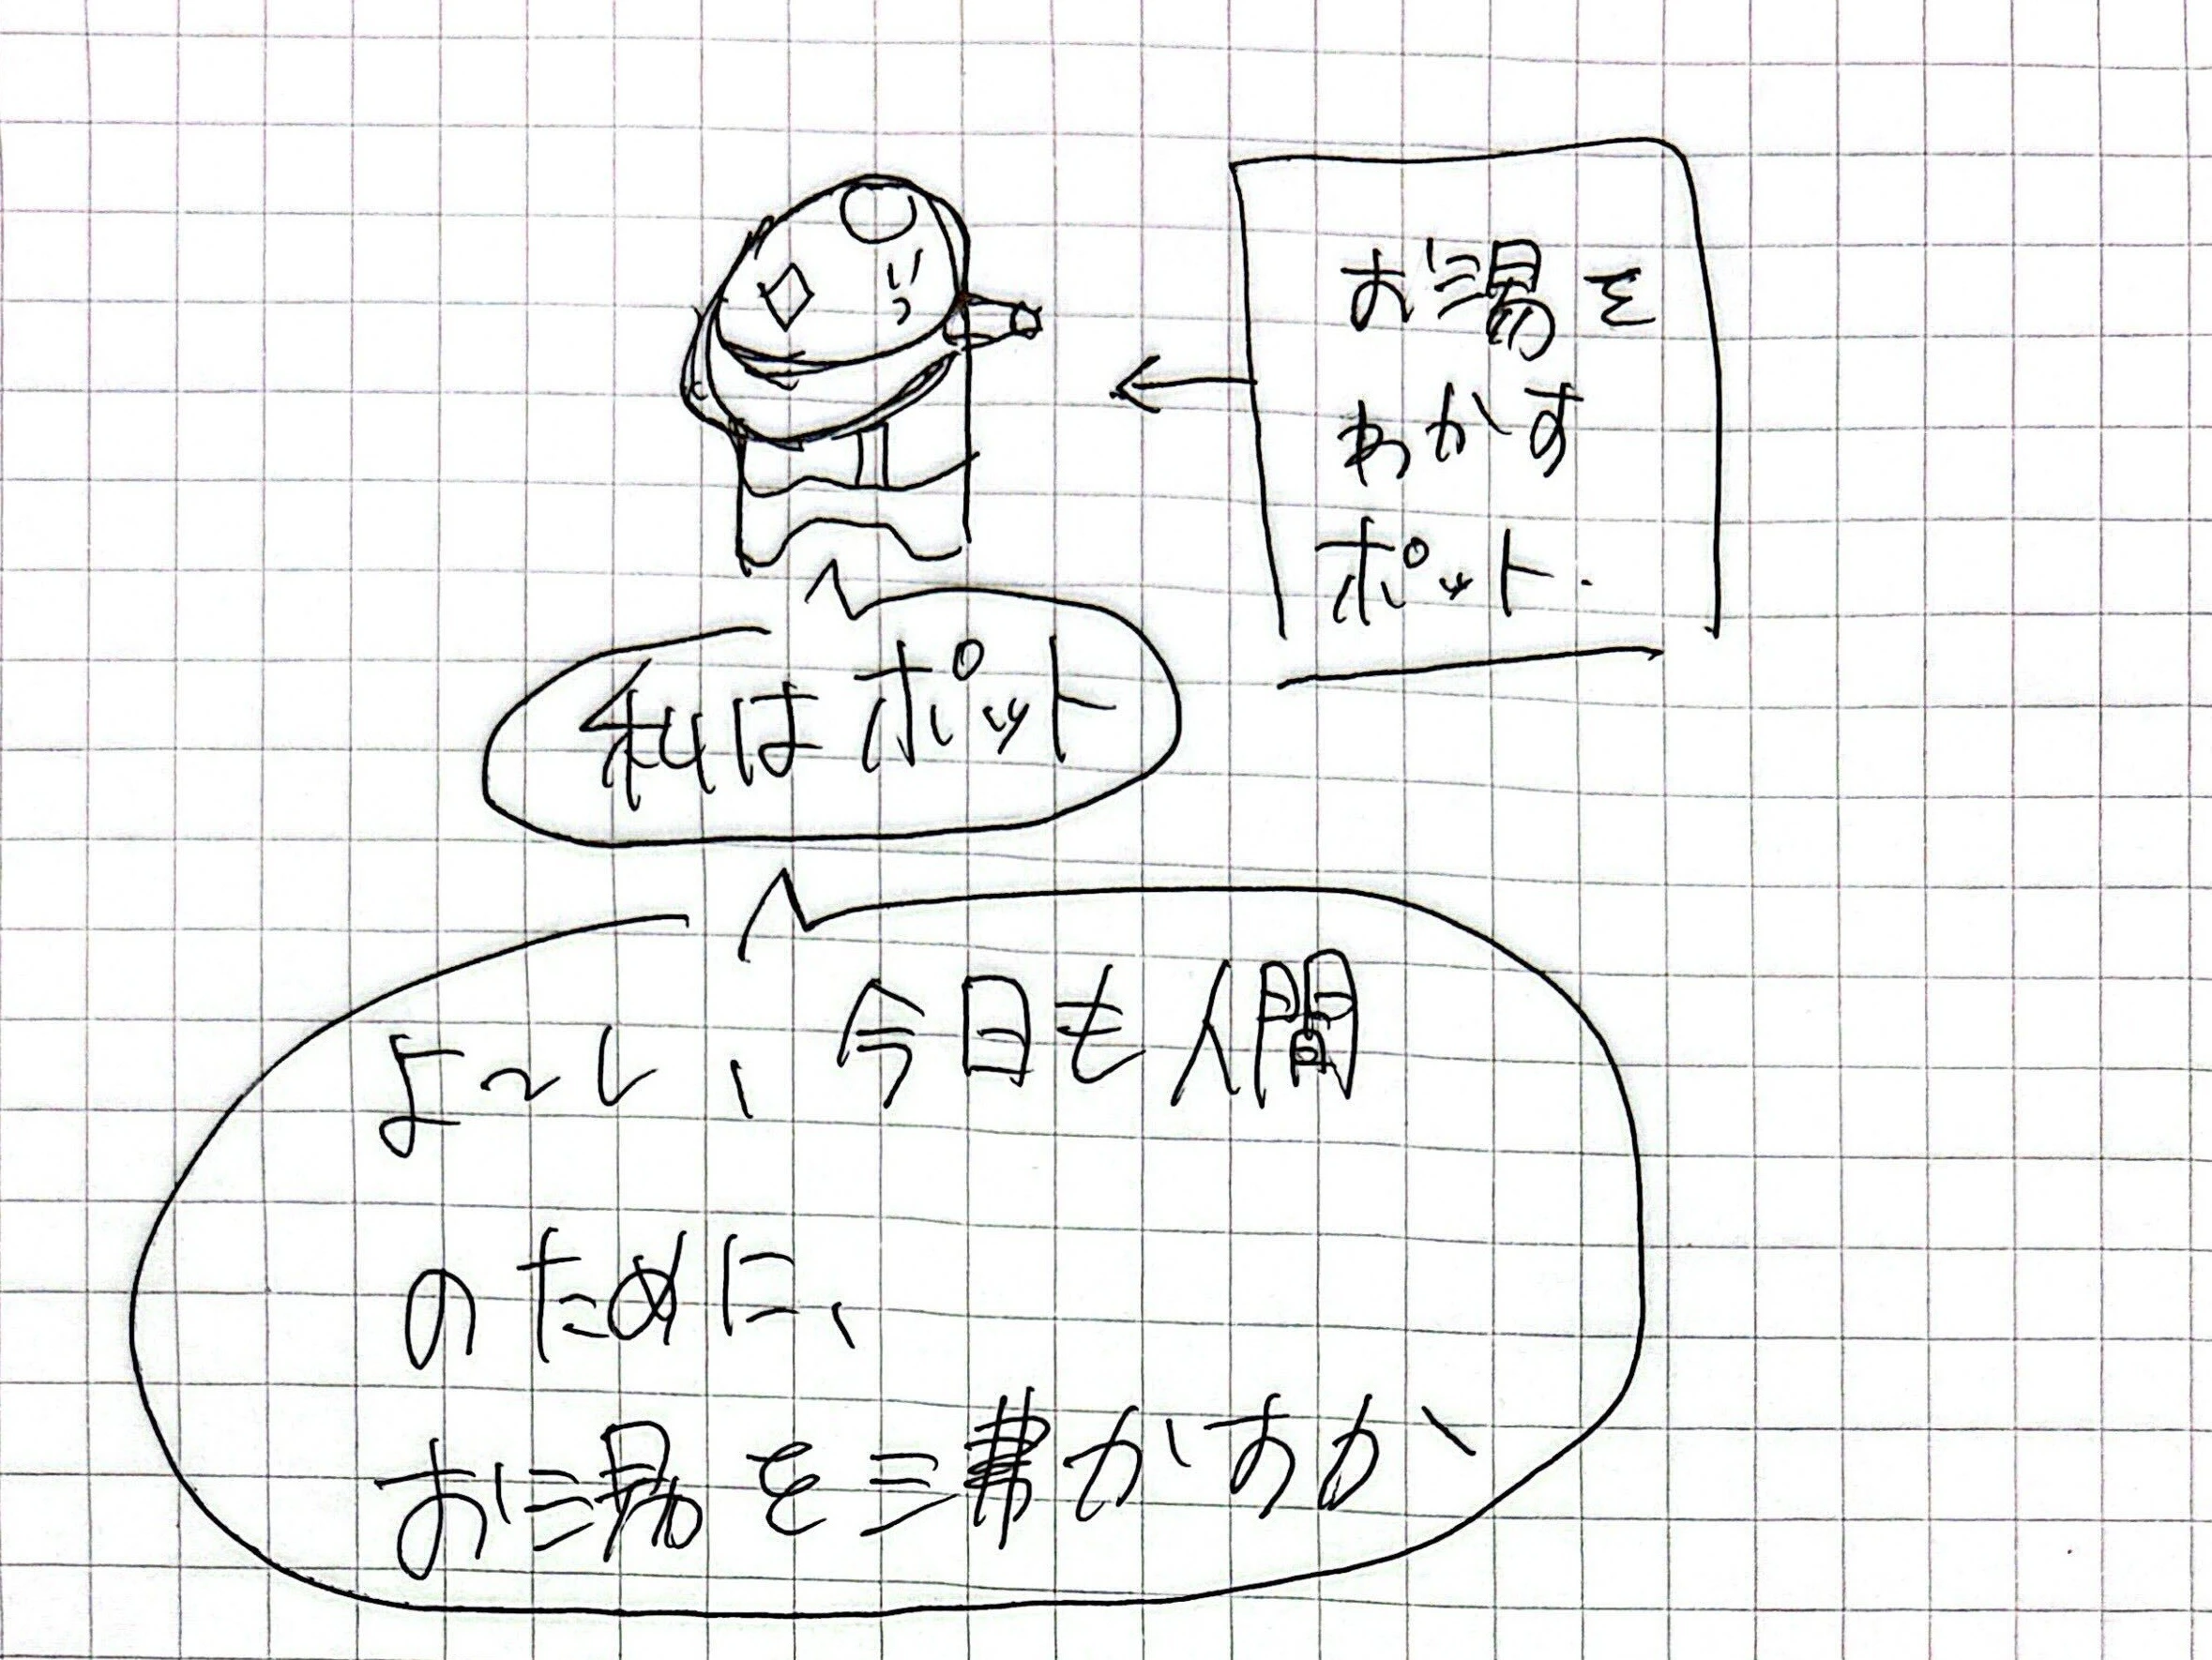 お湯を
わかす
ポット.
私はポット
よ〜し、今日も人間
のために、
お湯を沸かすか